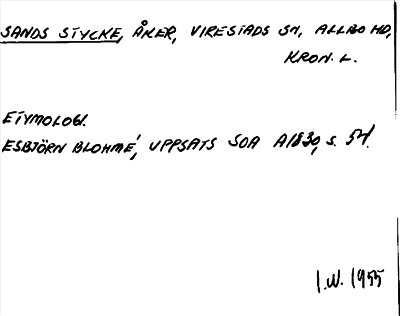 SANDS STYCKE, ÅKER, VIRESTADS SN, ALLBO HD,
KRON. L.
ETYMOLOGI.
ESBJÖRN BLOHMÉ, UPPSATS SOA A1830, S. 54.
I.W. 1955